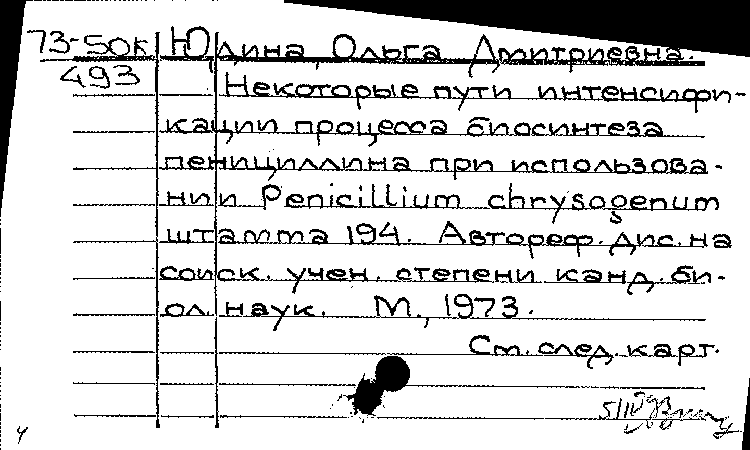 73-50к Юдина, Ольга Дмитриевна.
493
Некоторые пути интенсифи-
кации процесса биосинтеза
пенициллина при использова-
нии Penicillium chrysogenum
штамма 194. Автореф. дис. на
соиск. учен. степени канд. би-
ол. наук. М., 1973.
См. след. карт.